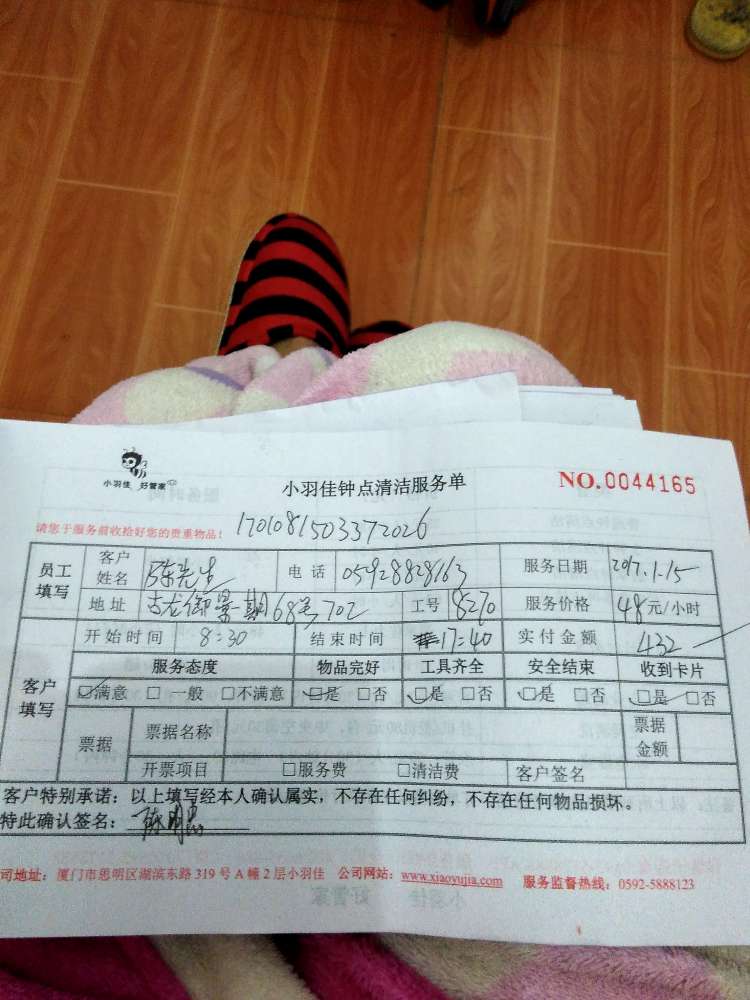 小羽佳 好管家
小羽佳钟点清洁服务单
NO.0044165
请您于服务前收拾好您的贵重物品!
1701081503372026
员工填写 客户姓名 陈先生 电话 05928828163 服务日期 2017.1.15
地址 古龙御景一期68号702 工号 8270 服务价格 48元/小时
客户填写 开始时间 8:30 结束时间 17:40 实付金额 432
服务态度 物品完好 工具齐全 安全结束 收到卡片
☑满意 □一般 □不满意 ☑是 □否 ☑是 □否 ☑是 □否 ☑是 □否
票据 票据名称 票据金额
开票项目 □服务费 □清洁费 客户签名
客户特别承诺:以上填写经本人确认属实,不存在任何纠纷,不存在任何物品损坏。
特此确认签名:
司地址:厦门市思明区湖滨东路319号A幢2层小羽佳 公司网站:www.xiaoyujia.com 服务监督热线:0592-5888123